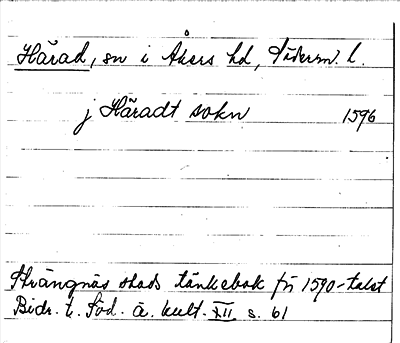 Härad, sn i Åkers hd, Söderm. l.
j Häradt sokn 1596
Strängnäs stads tänkebok fr 1590-talet
Bidr. t. Söd. ä. kult. XII s. 61